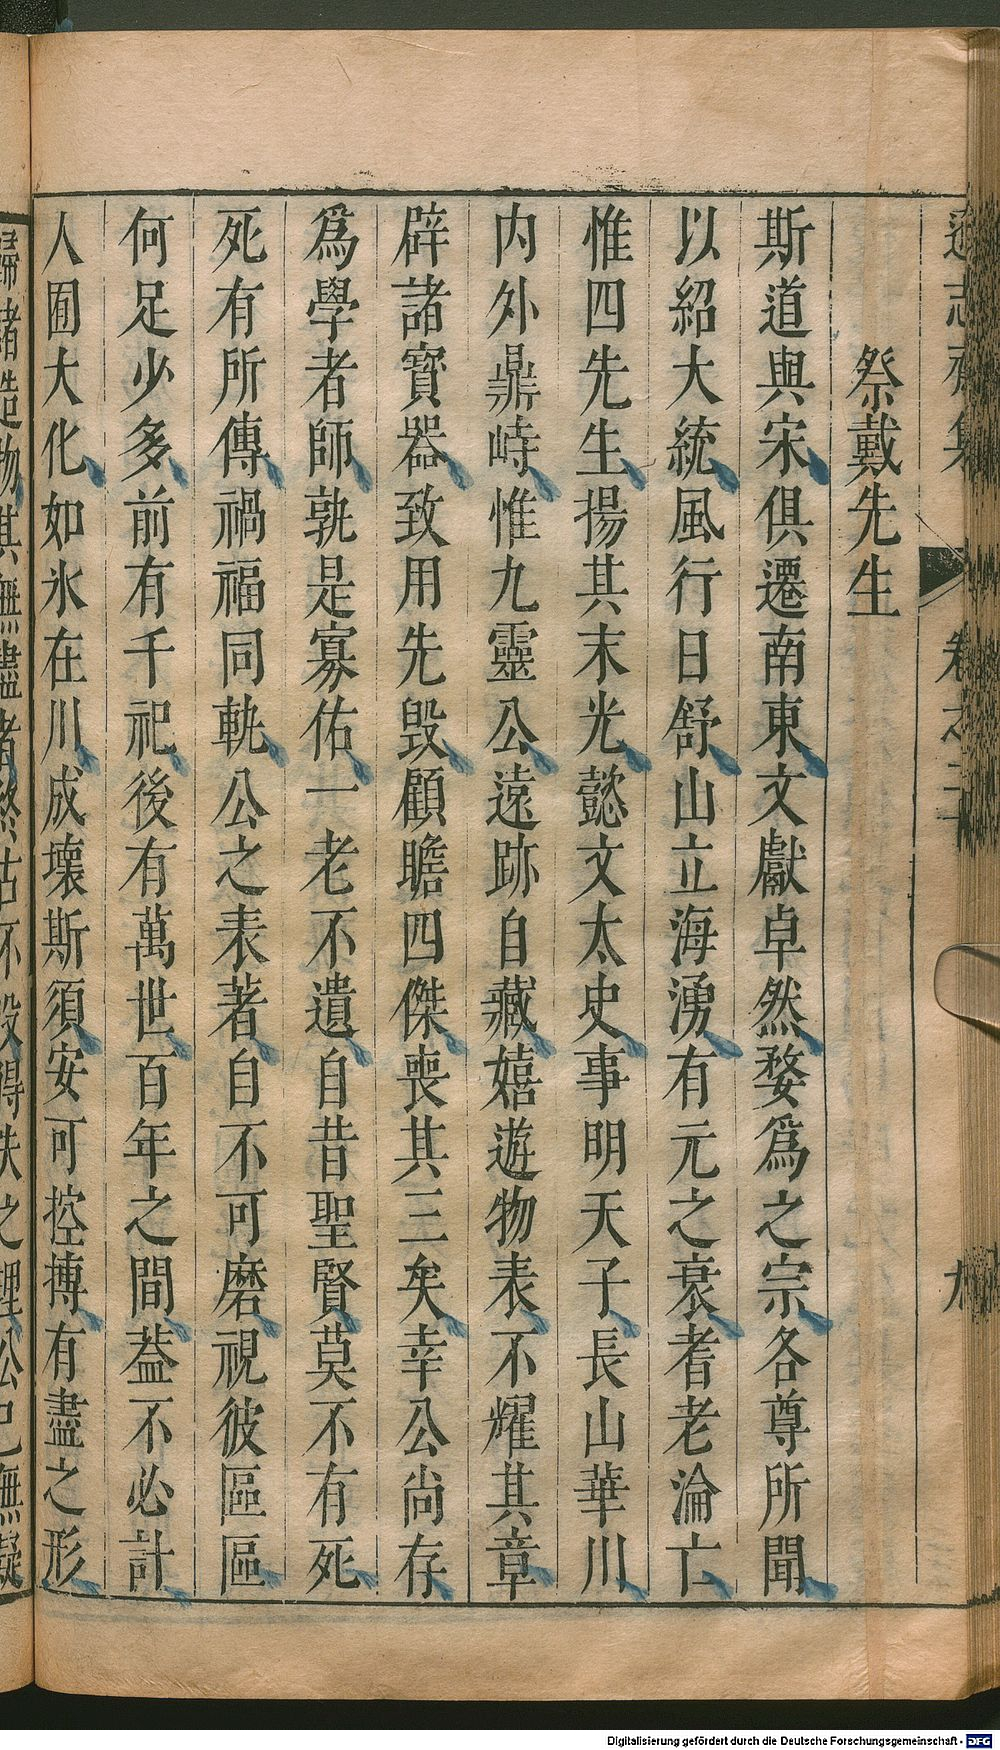 遜志齋集 卷之二十 九
祭戴先生
斯道與宋俱遷南東文獻卓然婺爲之宗各尊所聞
以紹大統風行日舒山立海湧有元之衰耆老淪亡
惟四先生揚其末光懿文太史事明天子長山華川
内外鼎峙惟九靈公遠跡自藏嬉遊物表不耀其章
辟諸寳器致用先毁顧瞻四傑喪其三矣幸公尚存
爲學者師孰是寡佑一老不遺自昔聖賢莫不有死
死有所傳禍福同軌公之表著自不可磨視彼區區
何足少多前有千祀後有萬世百年之間葢不必計
人囿大化如氷在川成壊斯須安可控摶有盡之形
歸諸造物其無盡者燃古不毁得失之理公已無疑
Digitalisierung gefördert durch die Deutsche Forschungsgemeinschaft - DFG